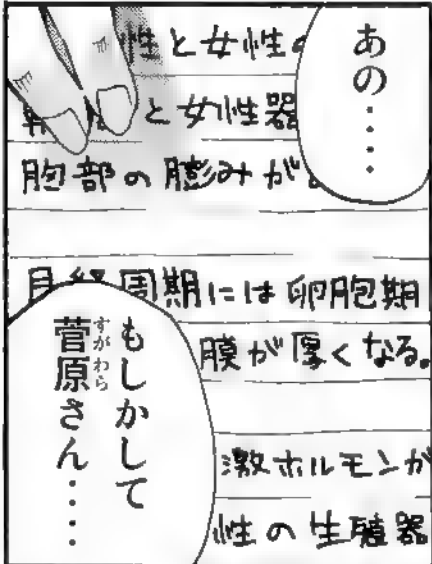 あの・・・・
性と女性
と女性器
胞部の膨みが
月経周期には卵胞期
膜が厚くなる。
激ホルモンが
性の生殖器
もしかして
菅原さん・・・・
すがわら